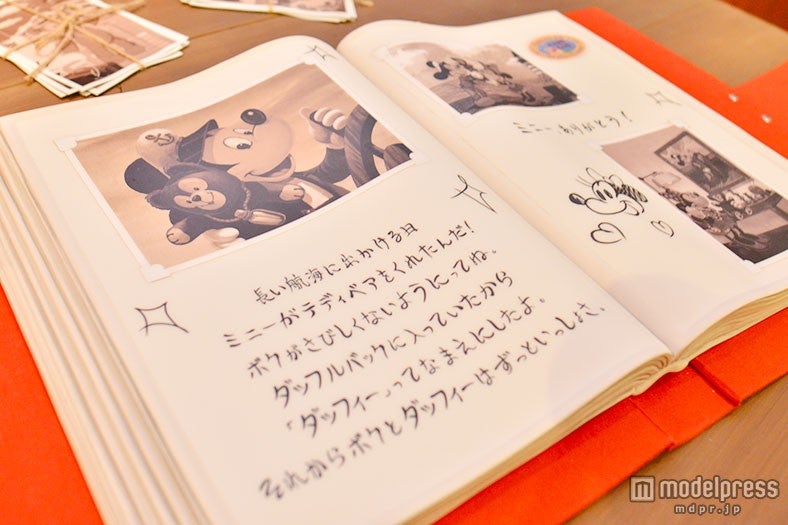 長い航海に出かける日
ミニーがテディベアをくれたんだ!
ボクがさびしくないようにってね。
ダッフルバックに入っていたから
「ダッフィー」ってなまえにしたよ。
それからボクとダッフィーはずっといっしょさ。
ミニーありがとう!
modelpress
mdpr.jp